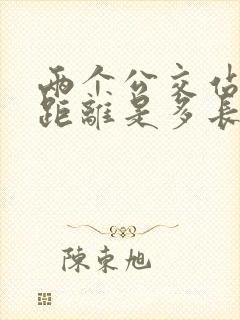 两个公交佔
距離是多長
陳東旭